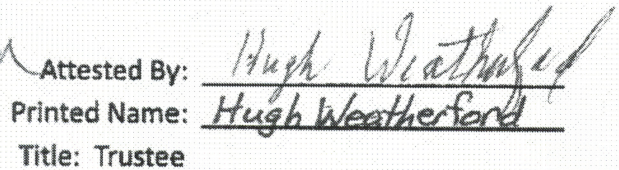 Attested By: Hugh Weatherford
Printed Name: Hugh Weatherford
Title: Trustee